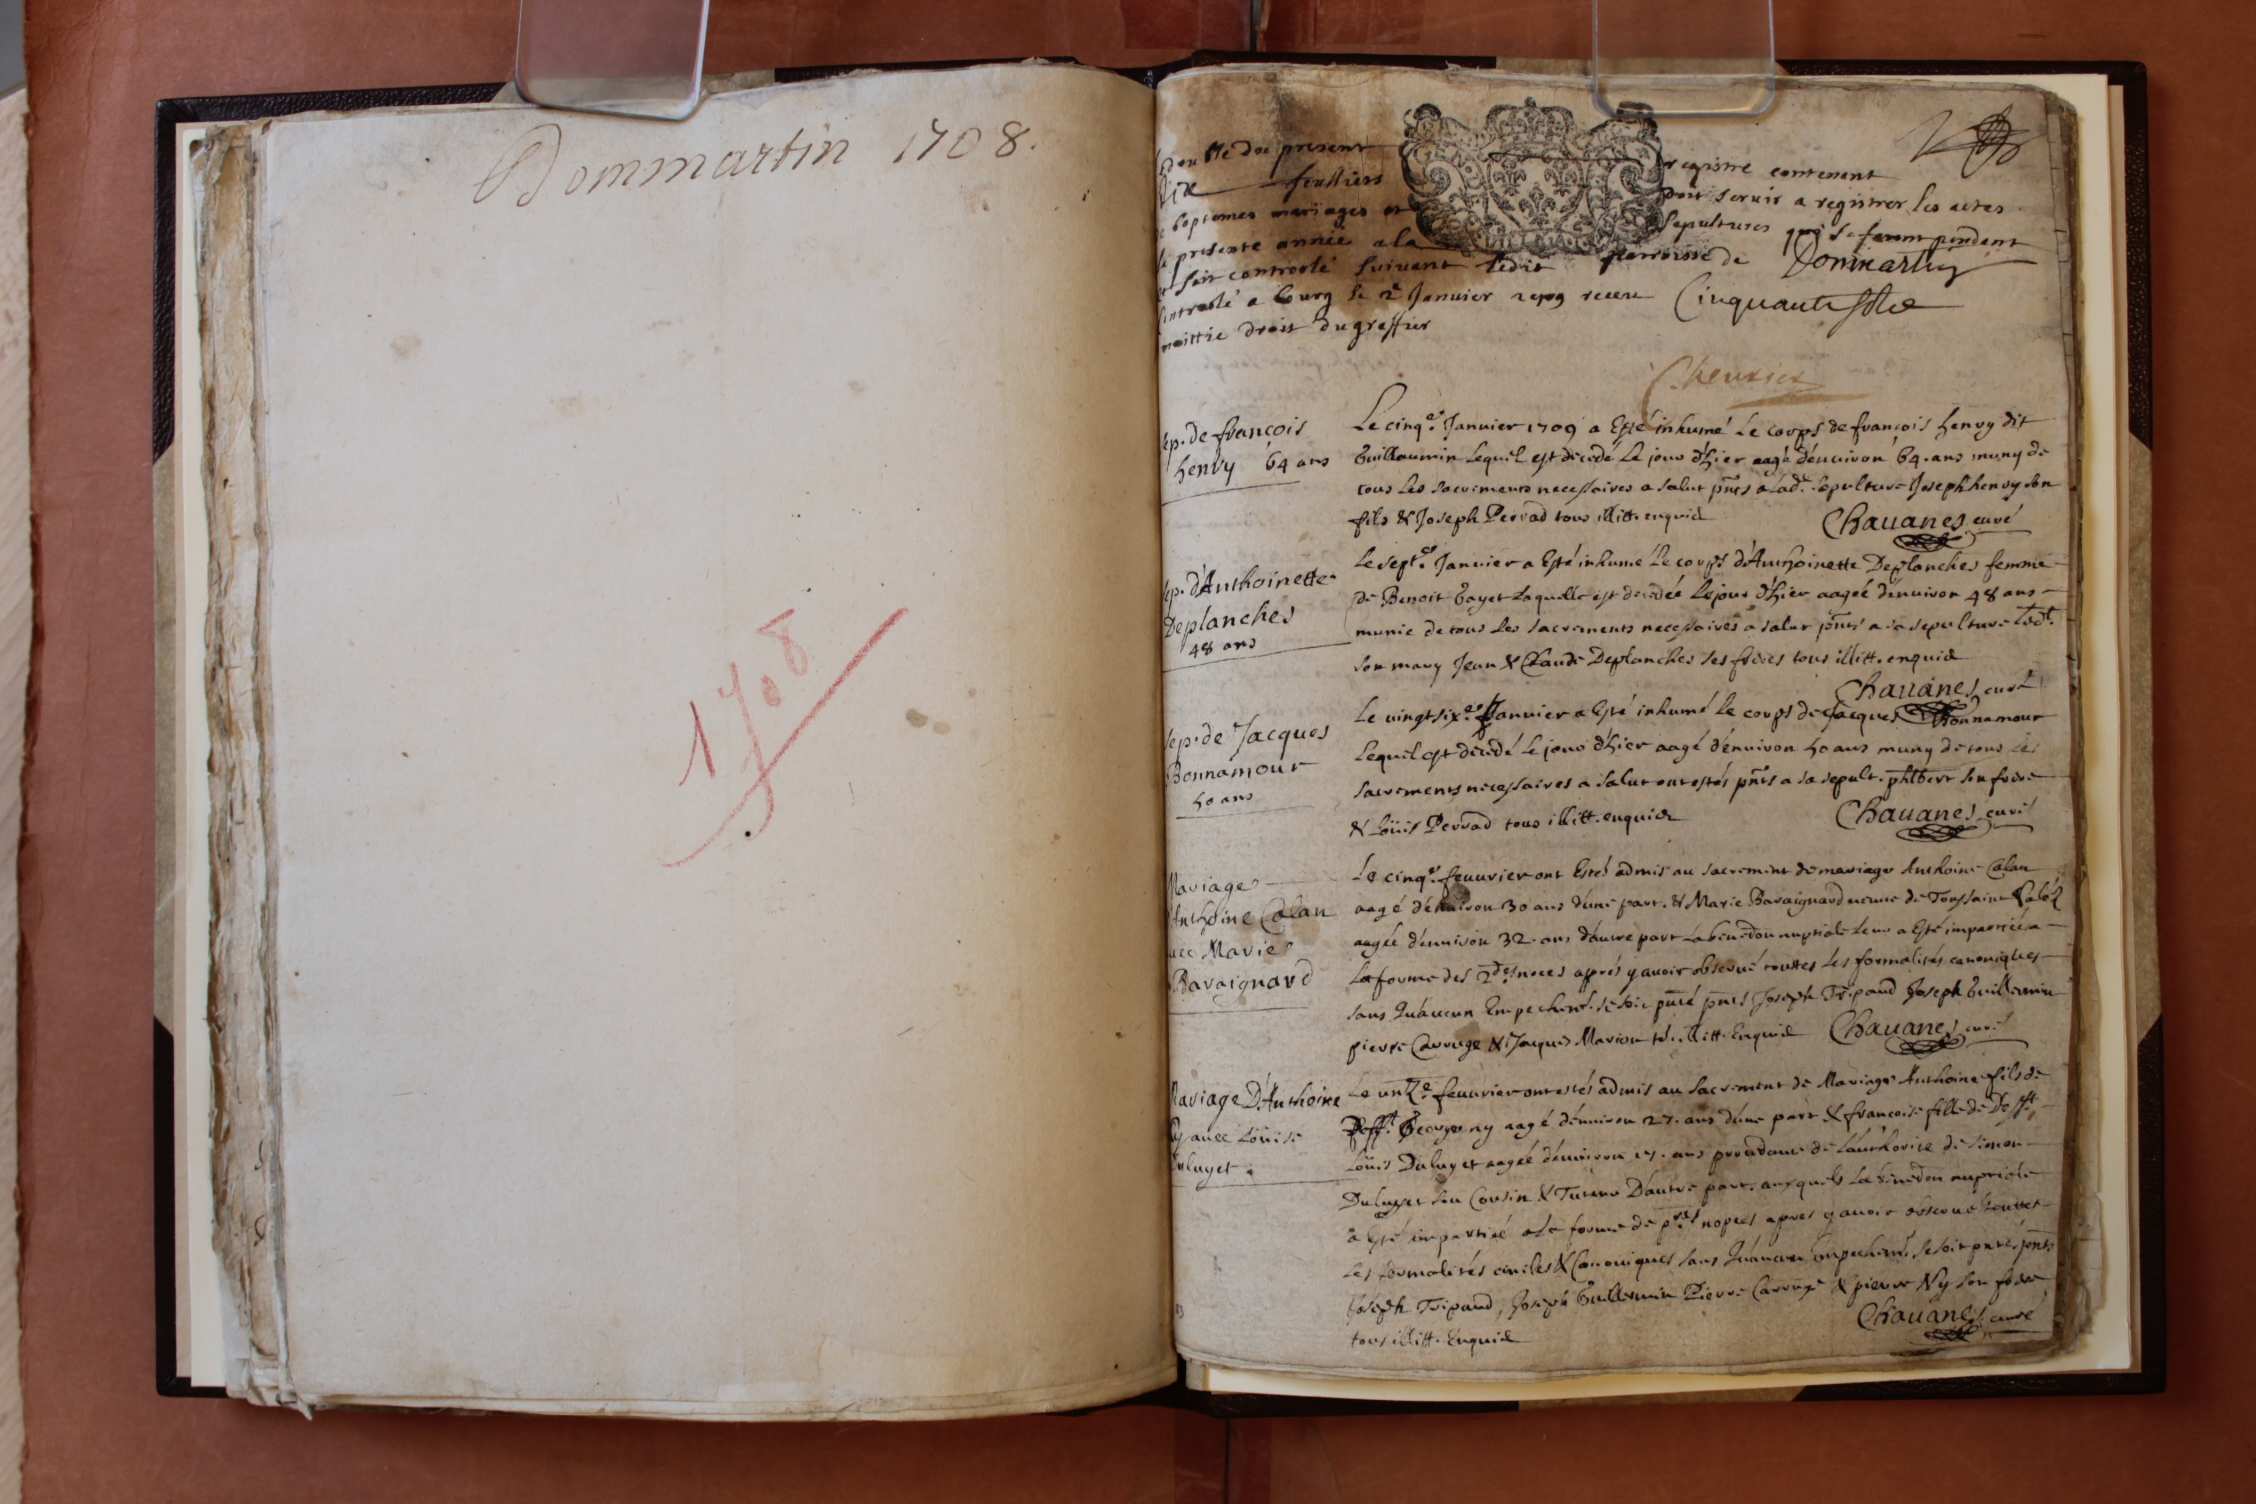 Dommartin 1708.
1708
Double du present registre contenant
dix feulliers pour servir a registrer les actes
de baptemes mariages et sepultures qui se feront pendent
la presente année a la parroisse de Dommartin
et soit controolé suivant l'edit
Controolé a bourg le 2e Janvier 1709 receu Cinquante sols
moittie droit du greffier
Chevrier
sep. de françois
henry 64 ans
Le cinq.e Janvier 1709 a Esté inhumé Le corps de françois henry dit
Guillaumin Lequel est decedé Le jour d'hier aagé d'enuiron 64. ans muny de
tous Les sacrements necessaires a salut pnts a lad.e sepulture Joseph henry son
fils & Joseph Perrad tous illitt. enquis
Chauanes curé
sep. d'Anthoinette
Deplanches
48 ans
Le sept.e Janvier a Esté inhumé Le corps d'Anthoinette Deplanches femme
de Benoit Gayet Laquelle est decedée Le jour d'hier aagée d'enuiron 48 ans
munie de tous Les sacrements necessaires a salut pnts a sa sepulture Led.t
son mary Jean & Claude Deplanches ses freres tous illitt. enquis
Chauanes curé
sep. de Jacques
Bonnamour
40 ans
Le vingt six.e Janvier a Esté inhumé Le corps de Jacques Bonnamour
Lequel est decedé Le jour d'hier aagé d'enuiron 40 ans muny de tous les
sacrements necessaires a salut ont estés pnts a sa sepult. philbert son frere
& Loüis Perrad tous illitt. enquis
Chauanes curé
Mariage
Anthoine Calan
auec Marie
Baraignard
Le cinq.e feuurier ont Estés admis au sacrement de mariage Anthoine Calan
aagé d'enuiron 30 ans d'une part. & Marie Baraignard veuue de Toussaint
aagée d'enuiron 32. ans d'autre part La bened.on nuptiale Leur a Esté impartiée a
La forme des 2.des noces aprés y auoir obserué touttes Les formalités canoniques
sans qu'aucun Empechem.t se soit pnté pnts Joseph Tripaud Joseph Guillermin
pierre Carruge & Jacques Marion ts. illitt. Enquis Chauanes curé
Mariage D'Anthoine
Ny auec Loüise
Duluyet.
Le unz.e feuurier ont estés admis au sacrement de Mariage Anthoine fils de
Deff.t George ny aagé d'enuiron 27. ans d'une part & francoise fille de Deff.t
Loüis Duluyet aagée d'enuiron 17. ans procedante de L'authorité de simon
Duluyet son Cousin & Tuteur D'autre part. auxquels La bened.on nuptiale
a Esté impartiée a La forme de p.res nopces apres y auoir obserué touttes
Les formalités ciuiles & Canoniques sans qu'aucun empechem.t se soit pnté, pnts
Joseph Tripaud, Joseph Guillermin Pierre Carruge & pierre Ny son frere
tous illitt. Enquis
Chauanes curé